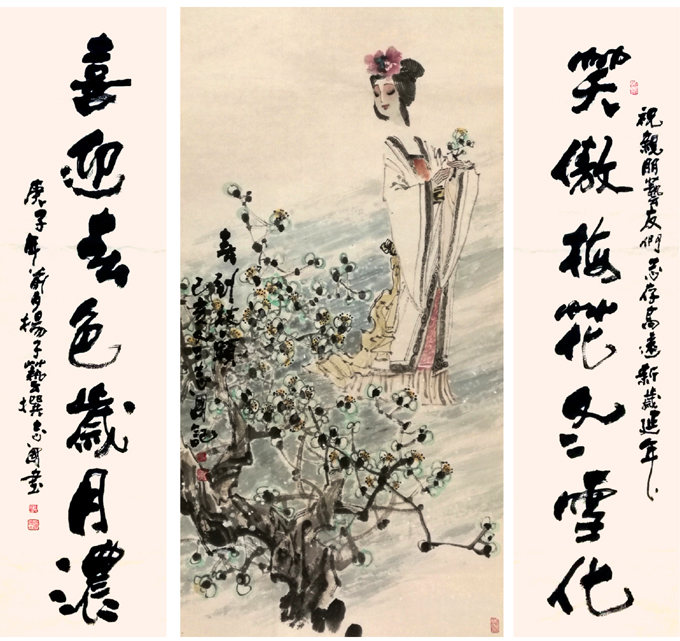 笑傲梅花冬雪化
祝親朋藝友們志存高遠新歲年
喜到枝頭
己亥冬月記
喜迎春色歲月濃
庚子年月楊子藝撰志國書